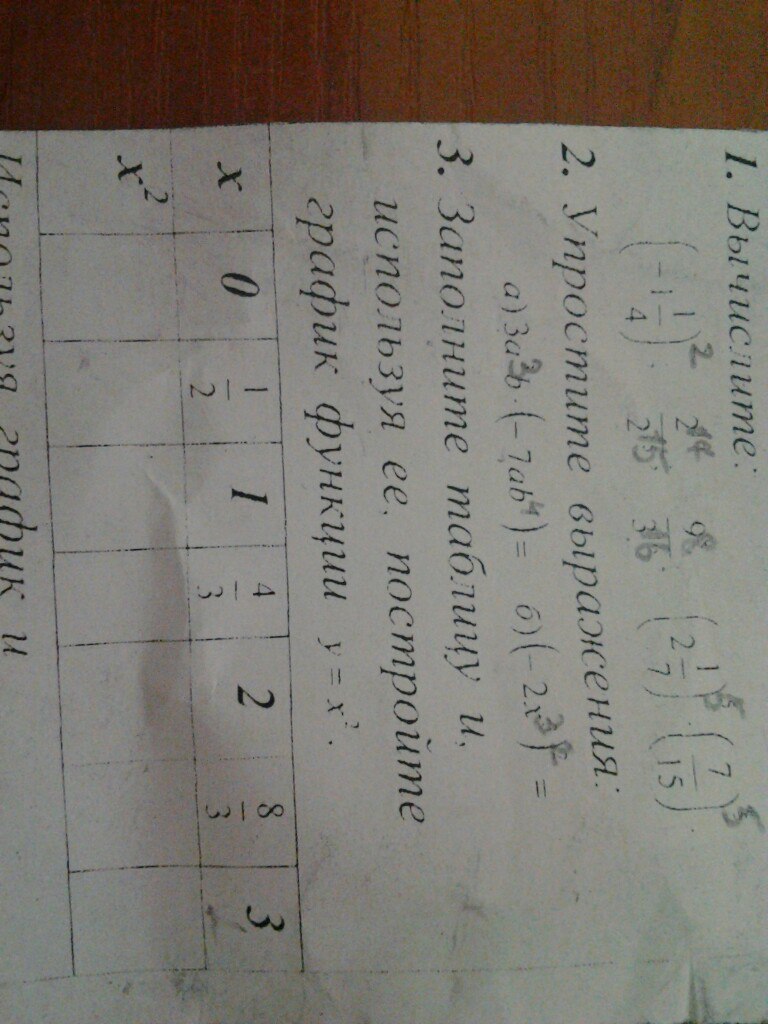 1. Вычислите:
(-1 1/4)² · 2 7 (2 1/7)⁵ · (7/15)⁵
2. Упростите выражения:
а) 3a³b · (-7ab⁴) = б) (-2x³)² =
3. Заполните таблицу и,
используя ее, постройте
график функции y = x².
x 0 1/2 1 4/3 2 8/3 3
x²
Используя график и